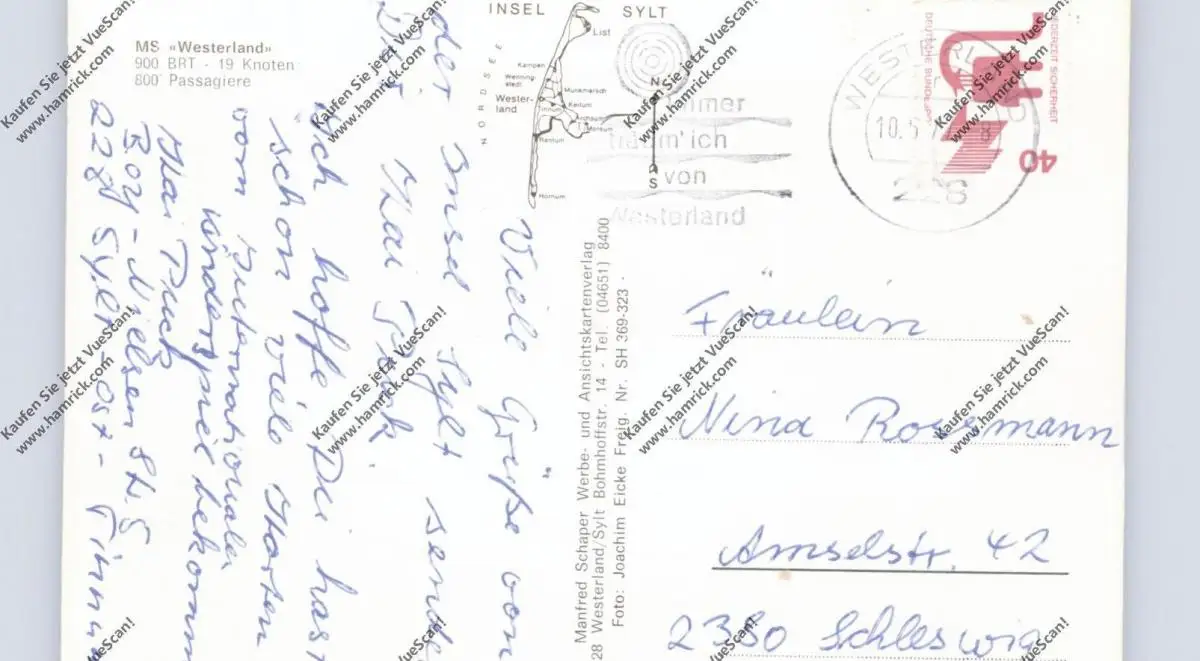 MS «Westerland»
900 BRT - 19 Knoten
800 Passagiere
INSEL SYLT
NORDSEE
List
Kampen
Wenning-
stedt
Munkmarsch
Wester-
land
Keitum
Tinnum
Archsum
Morsum
Rantum
Hörnum
N
S
Immer
träum' ich
von
Westerland
WESTERLAND
10.5.
228
JEDERZEIT SICHERHEIT
DEUTSCHE BUNDESPOST
40
Viele Grüße von
der Insel Sylt sendet
Dir Kai Puck
Ich hoffe Du hast
schon viele Karten
vom Internationalen
Kinderspiel bekommen
Kai Puck
Boy-Nielsen Str. 5
2280 Sylt-Ost - Tinnum
Manfred Schaper Werbe- und Ansichtskartenverlag
28 Westerland/Sylt Bohmhoffstr. 14 - Tel. (04651) 8400
Foto: Joachim Eicke Freig. Nr. SH 369-323
Fräulein
Nina
Amselstr. 42
2380 Schleswig
Kaufen Sie jetzt VueScan!
www.hamrick.com